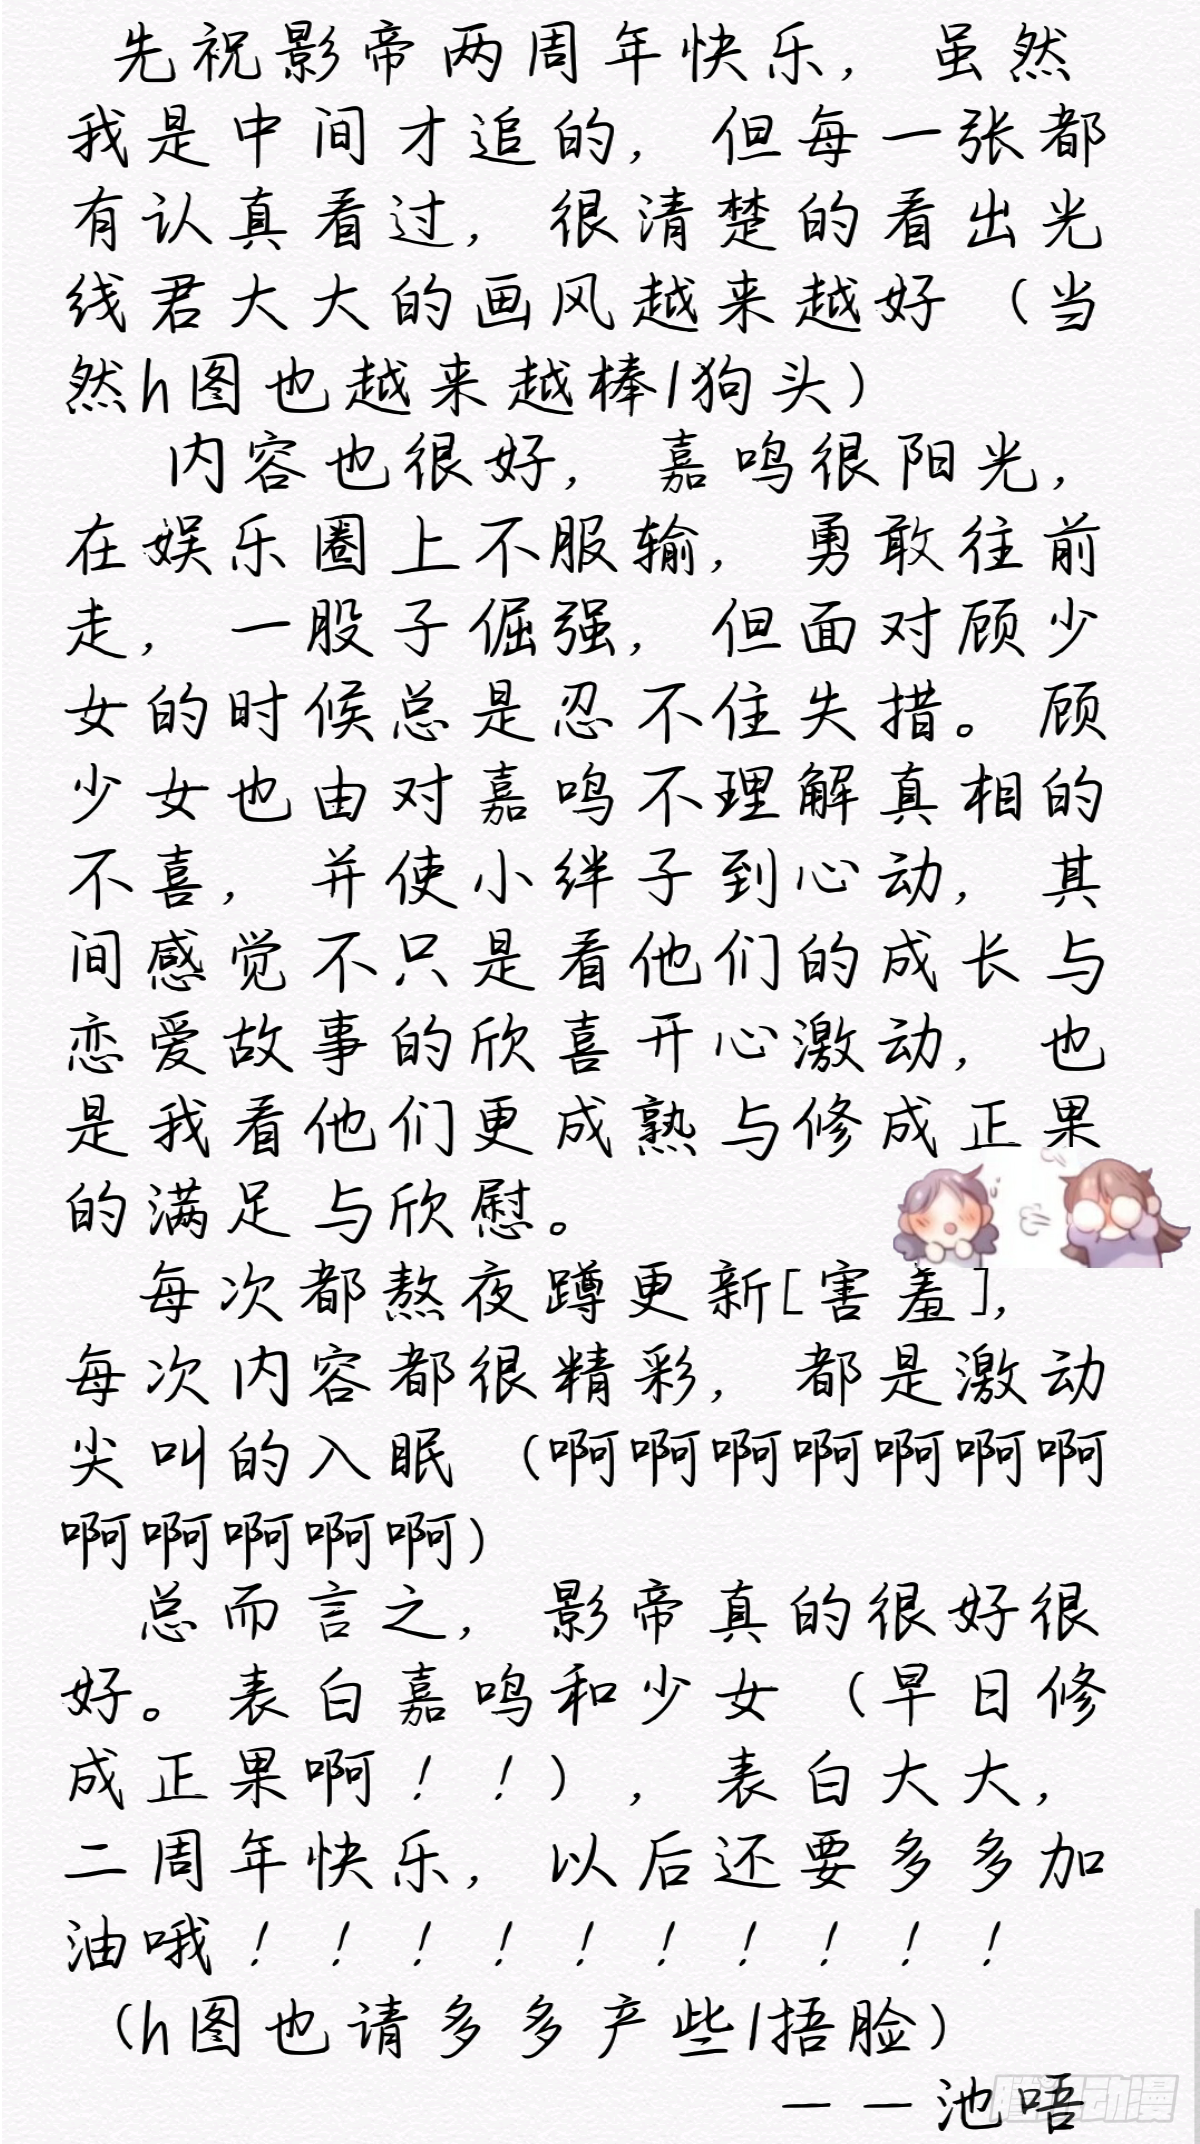 先祝影帝两周年快乐，虽然
我是中间才追的，但每一张都
有认真看过，很清楚的看出光
线君大大的画风越来越好（当
然h图也越来越棒/狗头）
内容也很好，嘉鸣很阳光，
在娱乐圈上不服输，勇敢往前
走，一股子倔强，但面对顾少
女的时候总是忍不住失措。顾
少女也由对嘉鸣不理解真相的
不喜，并使小绊子到心动，其
间感觉不只是看他们的成长与
恋爱故事的欣喜开心激动，也
是我看他们更成熟与修成正果
的满足与欣慰。
每次都熬夜蹲更新[害羞]，
每次内容都很精彩，都是激动
尖叫的入眠（啊啊啊啊啊啊啊
啊啊啊啊啊）
总而言之，影帝真的很好很
好。表白嘉鸣和少女（早日修
成正果啊！！），表白大大，
二周年快乐，以后还要多多加
油哦！！！！！！！！！！
（h图也请多多产些/捂脸）
——池唔
腾讯动漫